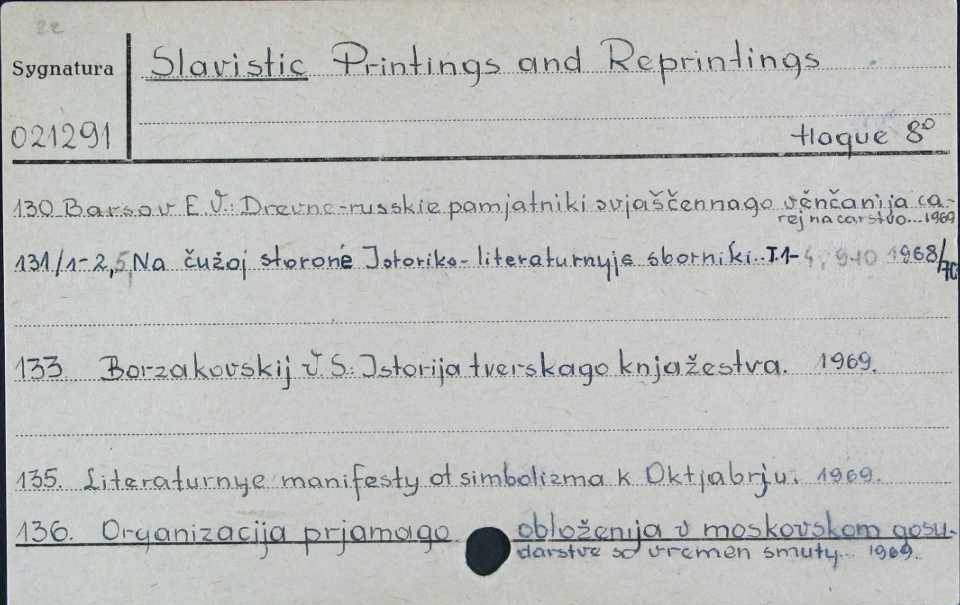 22
Sygnatura
Slavistic Printings and Reprintings
021291
Hague 8°
130 Barsov E.V.: Drevne-russkie pamjatniki svjaščennago věnčanija ca-
rej na carstvo... 1969
131/1-2,5, Na čužoj storoně Istoriko-literaturnyje sborniki.. T.1-4, 9-10 1968/70
133. Borzakovskij V.S.: Istorija tverskago knjažestva. 1969.
135. Literaturnye manifesty ot simbolizma k Oktjabrju. 1969.
136. Organizacija prjamago obloženija v moskovskom gosu-
darstve so vremen smuty... 1969.